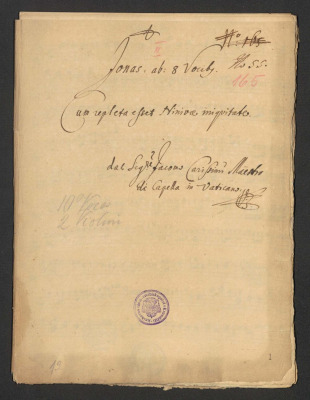 No: 165
Jonas. ab: 8 Vocib9.
No 55.
165
Cum repleta esset Ninive iniquitate.
dal Sigre Jacomo Carissimi Maestro
di Capella in Vaticano.
10 Voci
2 Violini